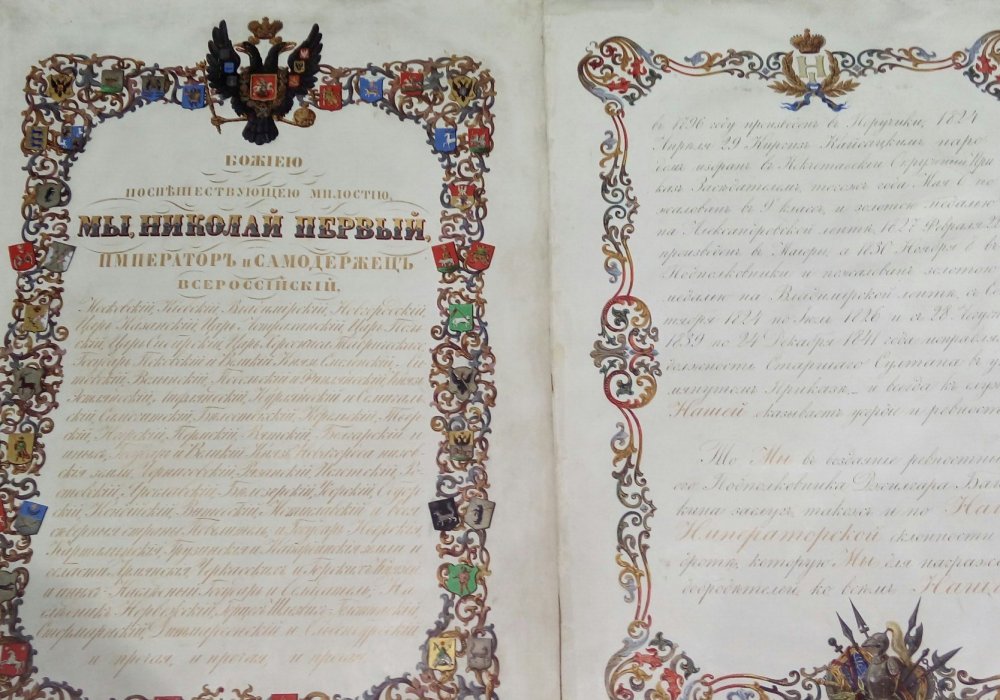 БОЖІЕЮ
ПОСПѢШЕСТВУЮЩЕЮ МИЛОСТІЮ,
МЫ, НИКОЛАЙ ПЕРВЫЙ,
ИМПЕРАТОРЪ и САМОДЕРЖЕЦЪ
ВСЕРОССІЙСКІЙ,
Московскій, Кіевскій, Владимірскій, Новгородскій,
Царь Казанскій, Царь Астраханскій, Царь Поль-
скій, Царь Сибирскій, Царь Херсониса-Таврическаго,
Государь Псковскій и Великій Князь Смоленскій, Ли-
товскій, Волынскій, Подольскій и Финляндскій, Князь
Эстляндскій, Лифляндскій, Курляндскій и Семигаль-
скій, Самогитскій, Бѣлостокскій, Корельскій, Твер-
скій, Югорскій, Пермскій, Вятскій, Болгарскій и
иныхъ; Государь и Великій Князь Новагорода низов-
скія земли, Черниговскій, Рязанскій, Полотскій, Ро-
стовскій, Ярославскій, Бѣлозерскій, Удорскій, Обдор-
скій, Кондійскій, Витебскій, Мстиславскій и всея
сѣверныя страны Повелитель, и Государь Иверскія,
Карталинскія, Грузинскія и Кабардинскія земли и
области Арменскія, Черкасскихъ и Горскихъ Князей
и иныхъ Наслѣдный Государь и Обладатель, На-
слѣдникъ Норвежскій, Герцогъ Шлезвигъ-Голстинскій,
Стормарнскій, Дитмарсенскій и Ольденбургскій
и прочая, и прочая, и прочая.
Н
въ году произведенъ въ Хорунжіи, 1824
Апрѣля 29 Киргизъ Кайсацкимъ наро
домъ избранъ въ Окружный При
казъ Засѣдателемъ, тогожъ года Мая 6 по
жалованъ въ 9 классъ, и золотою медалью
на Александровской лентѣ, 1827 Февраля
произведенъ въ Маіоры, а 1830 Ноября 6 въ
Подполковники и пожалованъ золотою
медалью на Владимірской лентѣ, съ Се
тября 1824 по Іюль 1826 и съ 28
1839 по 24 Декабря 1841 года исправлялъ
должность Старшаго Султана въ у
мянутомъ Приказѣ, и всегда къ служ
Нашей оказываетъ усердіе и ревность.
То Мы въ воздаяніе ревностны
его Подполковника
кина заслугъ, такожъ и по Наш
Императорской склонности
дротѣ, которую Мы для награжд
добродѣтелей ко всѣмъ Наши